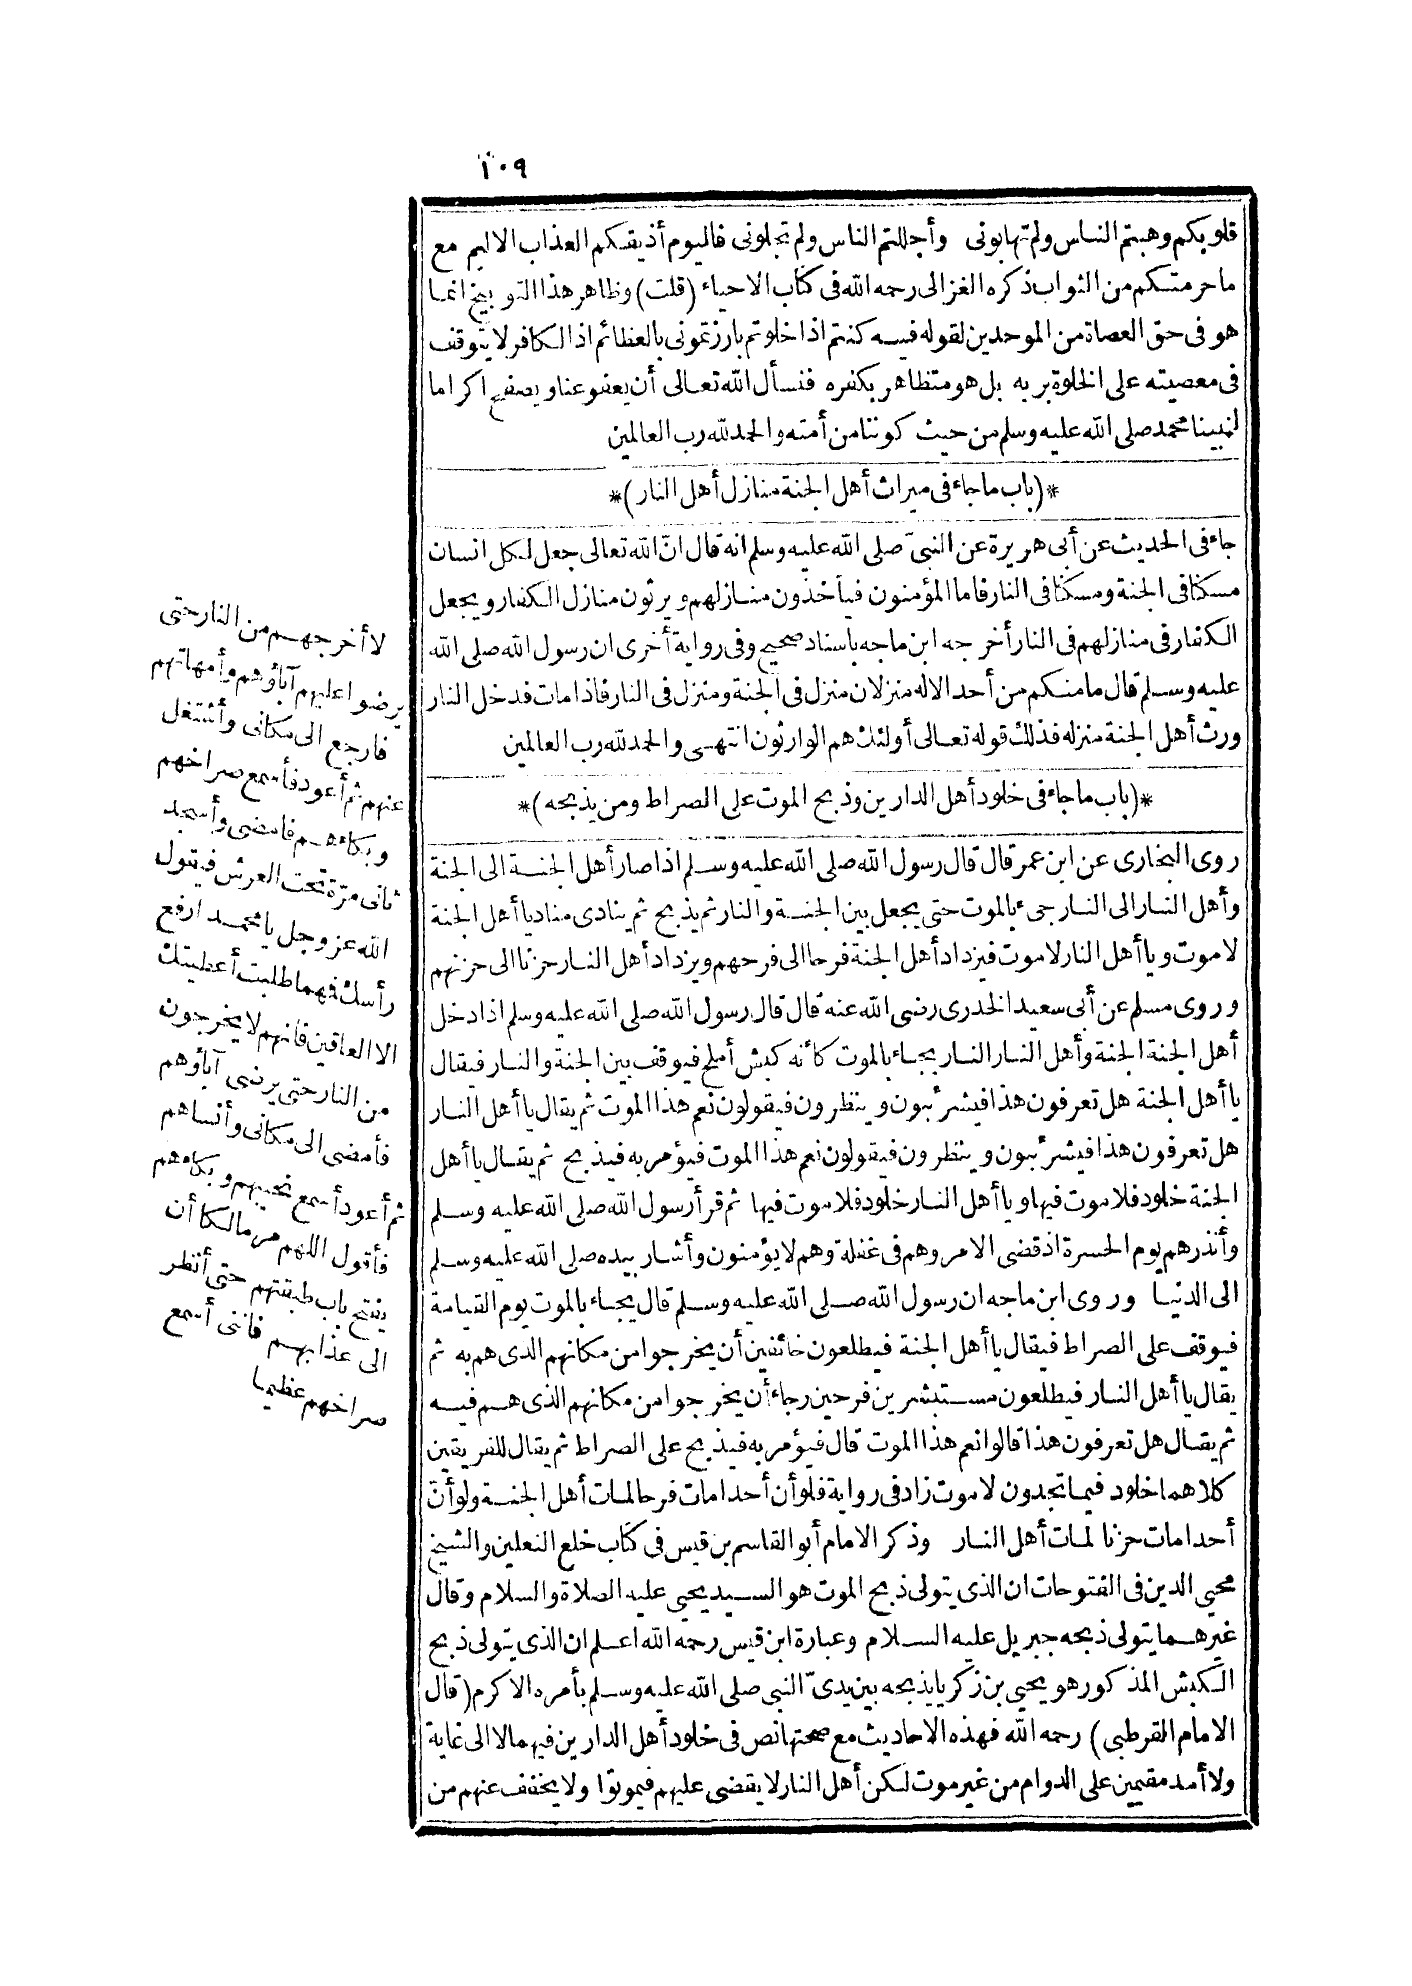 ١٠٩
قلوبكم وهبتم الناس ولم تهابونى وأجللتم الناس ولم تجلونى فاليوم أذيقكم العذاب الاليم مع
ما حرمتكم من الثواب ذكره الغزالى رحمه الله فى كتاب الاحياء (قلت) وظاهر هذا التوبيخ انما
هو فى حق العصاة من الموحدين لقوله فيه كنتم اذا خلوتم بارزتمونى بالعظائم اذ الكافر لا يتوقف
فى معصيته على الخلوة بربه بل هو متظاهر بكفره فنسأل الله تعالى أن يعفو عنا ويصفح اكراما
لنبينا محمد صلى الله عليه وسلم من حيث كوننا من أمته والحمد لله رب العالمين
*(باب ما جاء فى ميراث أهل الجنة منازل أهل النار)*
جاء فى الحديث عن أبى هريرة عن النبىّ صلى الله عليه وسلم انه قال انّ الله تعالى جعل لكل انسان
مسكنا فى الجنة ومسكنا فى النار فاما المؤمنون فيأخذون منازلهم ويرثون منازل الكفار ويجعل
الكفار فى منازلهم فى النار أخرجه ابن ماجه بأسناد صحيح وفى رواية أخرى ان رسول الله صلى الله
عليه وسلم قال ما منكم من أحد الا له منزلان منزل فى الجنة ومنزل فى النار فاذا مات فدخل النار
ورث أهل الجنة منزله فذلك قوله تعالى أولئك هم الوارثون انتهى والحمد لله رب العالمين
*(باب ما جاء فى خلود أهل الدارين وذبح الموت على الصراط ومن يذبحه)*
روى البخارى عن ابن عمر قال قال رسول الله صلى الله عليه وسلم اذا صار أهل الجنة الى الجنة
وأهل النار الى النار جىء بالموت حتى يجعل بين الجنة والنار ثم يذبح ثم ينادى مناد يا أهل الجنة
لا موت ويا أهل النار لا موت فيزداد أهل الجنة فرحا الى فرحهم ويزداد أهل النار حزنا الى حزنهم
وروى مسلم عن أبى سعيد الخدرى رضى الله عنه قال قال رسول الله صلى الله عليه وسلم اذا دخل
أهل الجنة الجنة وأهل النار النار يجاء بالموت كأنه كبش أملح فيوقف بين الجنة والنار فيقال
يا أهل الجنة هل تعرفون هذا فيشرئبون وينظرون فيقولون نعم هذا الموت ثم يقال يا أهل النار
هل تعرفون هذا فيشرئبون وينظرون فيقولون نعم هذا الموت فيؤمر به فيذبح ثم يقال يا أهل
الجنة خلود فلا موت فيها ويا أهل النار خلود فلا موت فيها ثم قرأ رسول الله صلى الله عليه وسلم
وأنذرهم يوم الحسرة اذ قضى الامر وهم فى غفلة وهم لا يؤمنون وأشار بيده صلى الله عليه وسلم
الى الدنيا وروى ابن ماجه ان رسول الله صلى الله عليه وسلم قال يجاء بالموت يوم القيامة
فيوقف على الصراط فيقال يا أهل الجنة فيطلعون خائفين أن يخرجوا من مكانهم الذى هم به ثم
يقال يا أهل النار فيطلعون مستبشرين فرحين رجاء أن يخرجوا من مكانهم الذى هم فيه
ثم يقال هل تعرفون هذا قالوا نعم هذا الموت قال فيؤمر به فيذبح على الصراط ثم يقال للفريقين
كلاهما خلود فيما تجدون لا موت زاد فى رواية فلو أن أحدا مات فرحا لمات أهل الجنة ولو أنّ
أحدا مات حزنا لمات أهل النار وذكر الامام أبو القاسم بن قيس فى كتاب خلع النعلين والشيخ
محيي الدين فى الفتوحات ان الذى يتولى ذبح الموت هو السيد يحيى عليه الصلاة والسلام وقال
غيرهما يتولى ذبحه جبريل عليه السلام وعبارة ابن قيس رحمه الله اعلم ان الذى يتولى ذبح
الكبش المذكور هو يحيى بن زكريا يذبحه بين يدىّ النبي صلى الله عليه وسلم بأمره الاكرم (قال
الامام القرطبى) رحمه الله فهذه الاحاديث مع صحتها نص فى خلود أهل الدارين فيهما لا الى غاية
ولا أمد مقيمين على الدوام من غير موت لكن أهل النار لا يقضى عليهم فيموتوا ولا يخفف عنهم من
لا أخرجهم من النار حتى
يرضوا عليهم آباؤهم وأمهاتهم
فارجع الى مكانى وأشتغل
عنهم ثم أعود فأسمع صراخهم
وبكاءهم فامضى وأسجد
ثانى مرّة تحت العرش فيقول
الله عز وجل يا محمد ارفع
رأسك فهما طلبت أعطيتك
الا العاقين فانهم لا يخرجون
من النار حتى يرضى آباؤهم
فأمضى الى مكانى وأنساهم
ثم أعود أسمع نحيبهم وبكاءهم
فأقول اللهم مر مالكا أن
يفتح باب طبقتهم حتى أنظر
الى عذابهم فانى أسمع
صراخهم عظيما